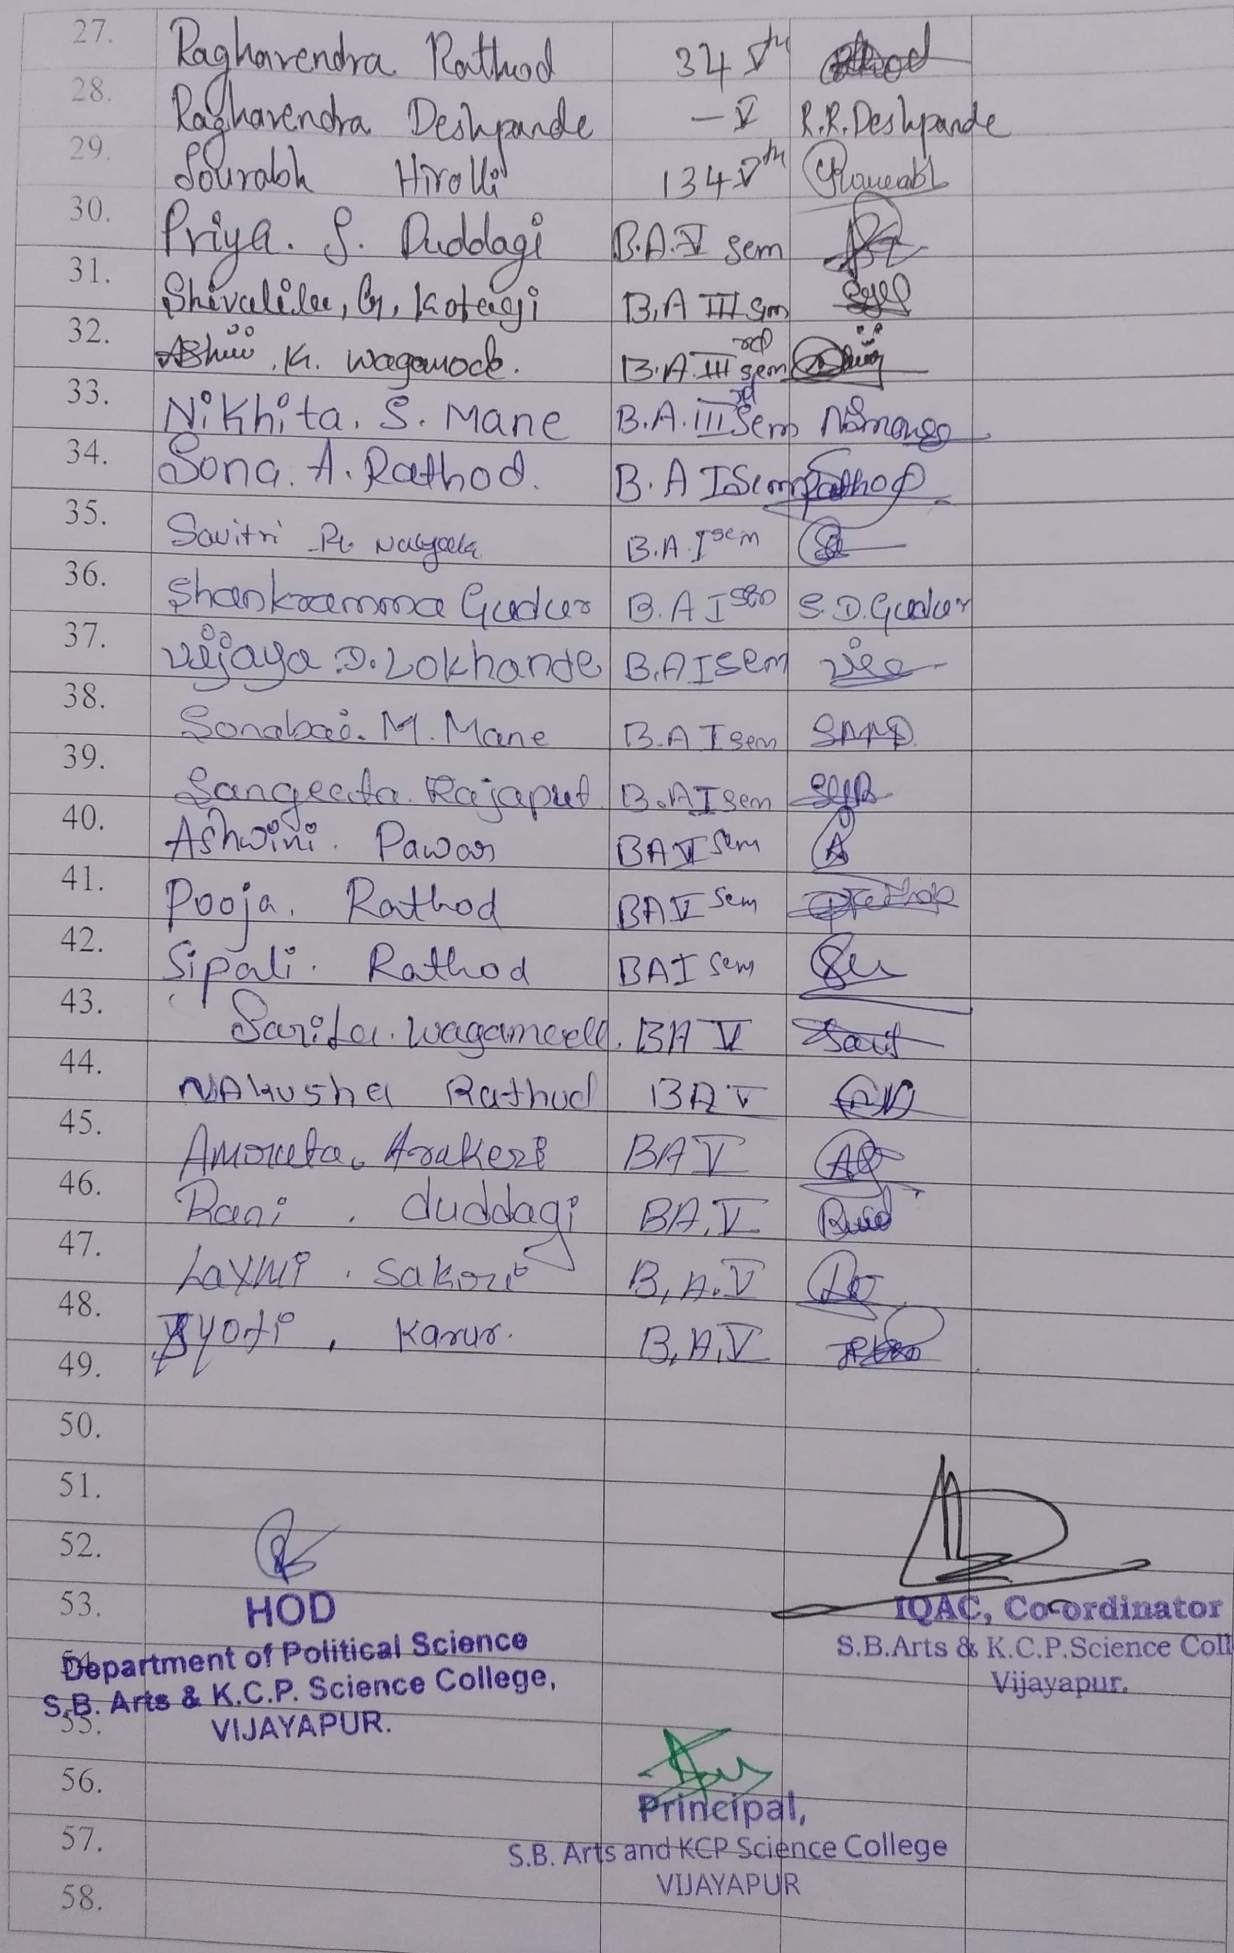 27. Raghavendra Rathod 34 Vth Rathod
28. Raghavendra Deshpande – V R.R.Deshpande
29. Sourabh Hirolli 134 Vth
30. Priya. S. Duddagi B.A. V Sem
31. Shivalila, G, Kotagi B.A III Sem
32. K. B.A. III rd sem
33. Nikhita. S. Mane B.A. III rd Sem
34. Sona. A. Rathod. B.A I Sem Rathod
35. Savitri B.A. I sem
36. Shankramma Gudur B.A I sem S.D.Gudur
37. Vijaya .D. Lokhande B.A I sem
38. Sonabai. M. Mane B.A I sem
39. Sangeeta. Rajaput B.A I sem
40. Ashwini. Pawar BA V Sem A
41. Pooja. Rathod BA V Sem
42. Sipali. Rathod BA I Sem
43. Sarita. BA V
44. NAkusha Rathod BA V
45. Amruta. Arakeri BA V
46. Rani . duddagi BA. V
47. Laxmi . Sakori B, A. V
48. Jyoti , Karur. B, A, V
49.
50.
51.
52.
53.
54.
55.
56.
57.
58.
HOD
Department of Political Science
S.B. Arts & K.C.P. Science College,
VIJAYAPUR.
IQAC, Co-ordinator
S.B.Arts & K.C.P.Science Coll
Vijayapur.
Principal,
S.B. Arts and KCP Science College
VIJAYAPUR